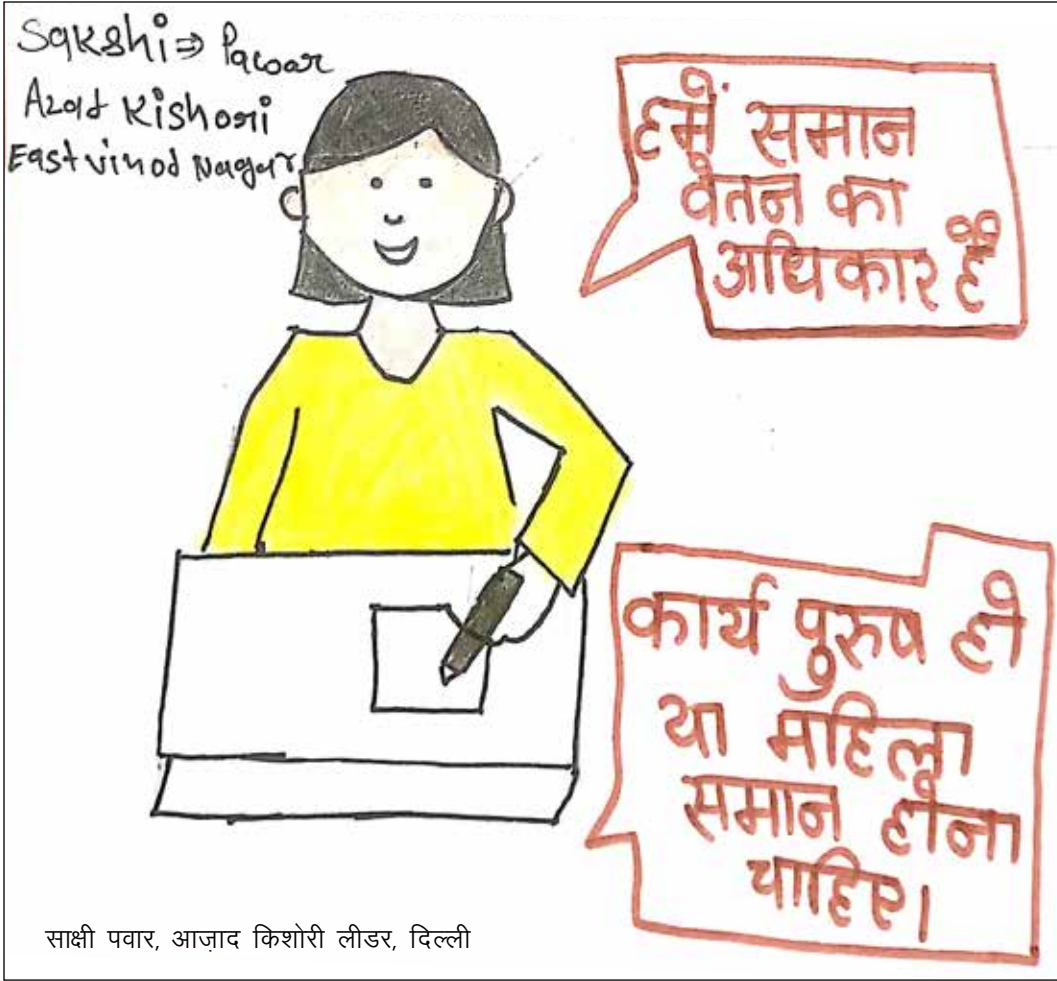 Sakshi ⇒ Pawar
Azad Kishori
East vinod Nagar
हमें समान
वेतन का
अधिकार है
कार्य पुरुष हो
या महिला
समान होना
चाहिए।
साक्षी पवार, आज़ाद किशोरी लीडर, दिल्ली